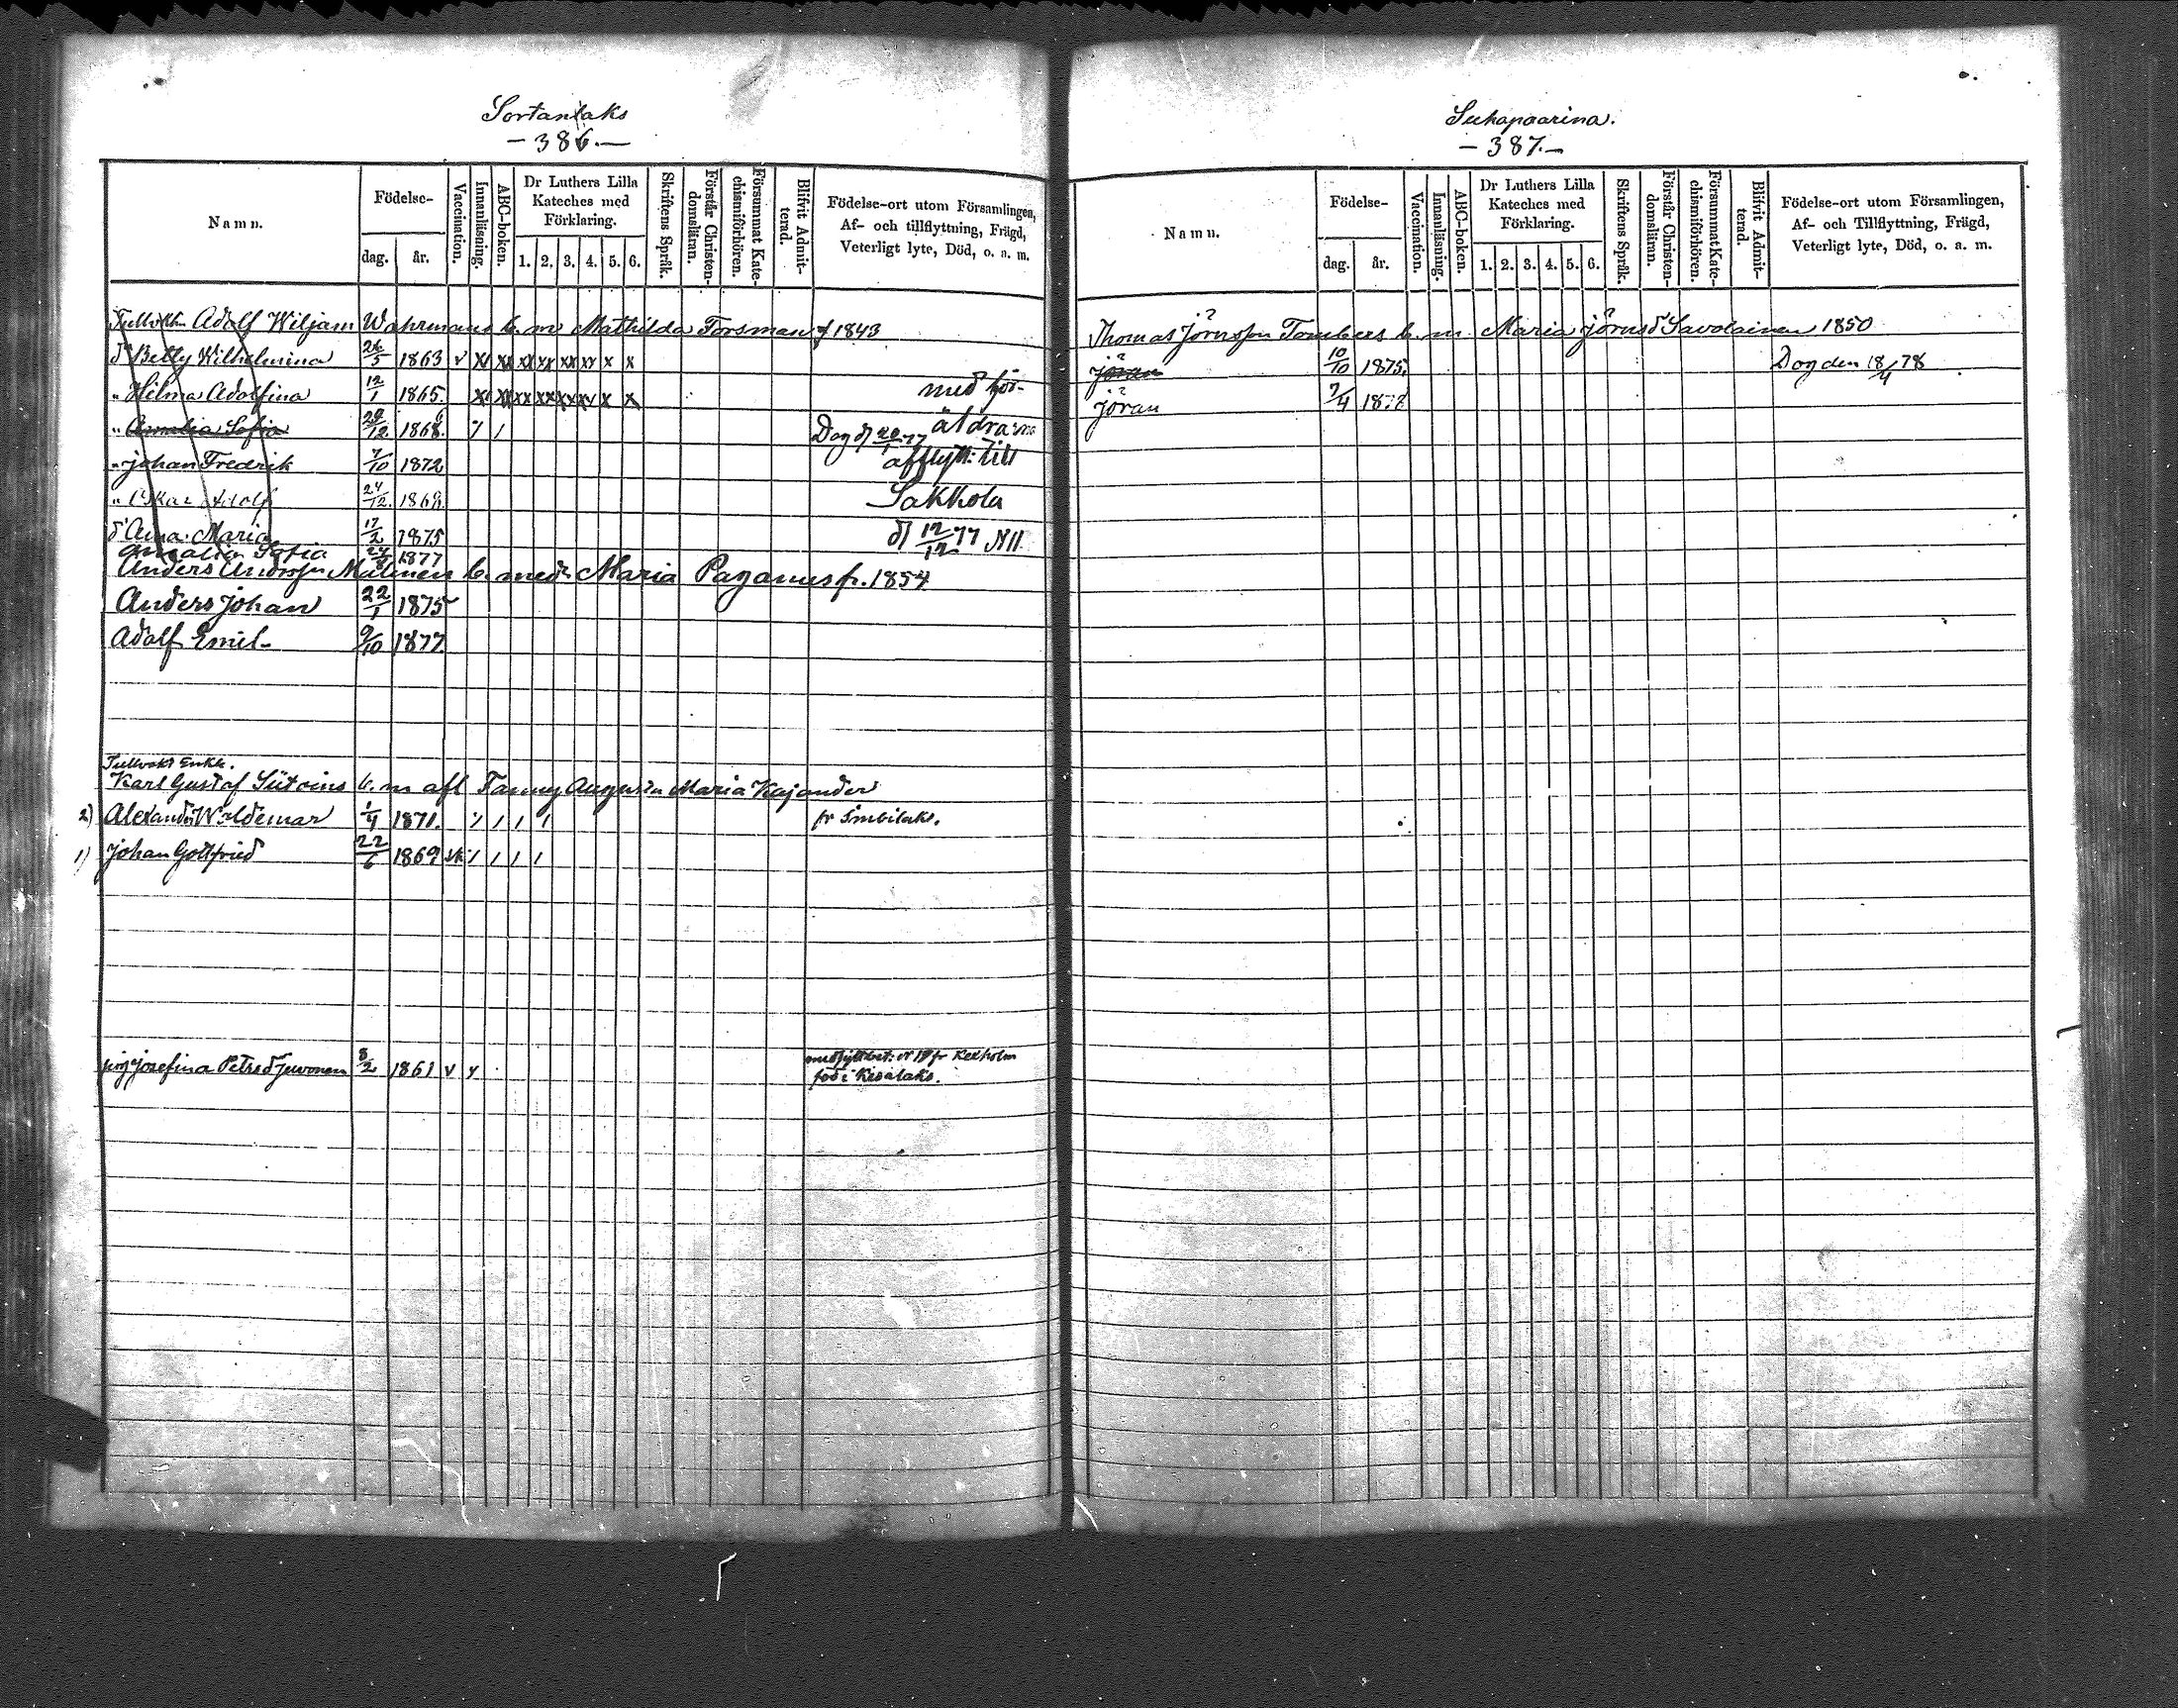 Sortanlaks
- 386. -
Namn.
Födelse-
dag.
år.
Vaccination.
Innanläsning.
ABC-boken.
Dr Luthers Lilla
Kateches med
Förklaring.
1. 2. 3. 4. 5. 6.
Skriftens Språk.
Förstår Christen-
domsläran.
Försummat Kate-
chismiförhören.
Blifvit Admit-
terad.
Födelse-ort utom Församlingen,
Af- och tillflyttning, Frägd,
Veterligt lyte, Död, o. a. m.
Adolf Wiljam Wahrmans b. m. Mathilda Forsman f 1843
d' Betty Wilhelmina 26/5 1863 v xx xx xx xx xx x x
" Hilma Adolfina 12/1 1865. xx xx xx xx xx x x med för-
" Amalia Sofia 29/12 1868. Dog d 20/1 77 äldrarne
" Johan Fredrik 7/10 1872 afflytt: till
" Oskar Adolf 24/12 1869. Sakkola
d' Aina Maria 17/2 1875 d 12/12 77 N 11.
Amalia Sofia 24/8 1877
Anders Malinen b. med Maria Paganus f. 1854
Anders Johan 22/1 1875
Adolf Emil 9/10 1877
Tullvakt Enkl.
Karl Gustaf b. m. afl Fanny Augusta Maria Kajander
2) Alexander Woldemar 1/4 1871. fr Imbilaks.
1) Johan Gottfried 22/6 1869
pig Josefina Petersd Juvonen 8/2 1861 v fr Kexholm
föd i Kesälaks.
Suhapaarina.
- 387. -
Namn.
Födelse-
dag.
år.
Vaccination.
Innanläsning.
ABC-boken.
Dr Luthers Lilla
Kateches med
Förklaring.
1. 2. 3. 4. 5. 6.
Skriftens Språk.
Förstår Christen-
domslämn.
Försummat Kate-
chismiförhören.
Blifvit Admit-
terad.
Födelse-ort utom Församlingen,
Af- och Tillflyttning, Frägd,
Veterligt lyte, Död, o. a. m.
Thomas Jöransson b. m. Maria Jöransd Savolainen 1850
Jöran 10/10 1875. Dog den 18/4 78
Jöran 7/4 1878